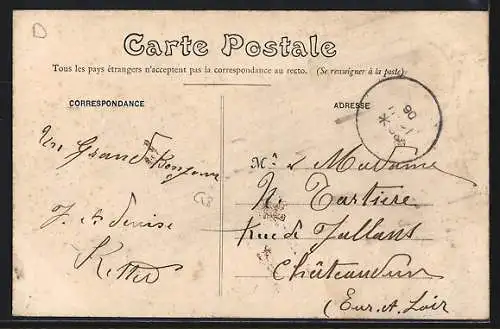 D
Carte Postale
Tous les pays étrangers n'acceptent pas la correspondance au recto. (Se renseigner à la poste)
CORRESPONDANCE
ADRESSE
Un Grand Bonjour
J. et Denise
Mr & Madame
N. Tartiere
Rue de Jallans
Châteaudun
(Eur. et. Loir